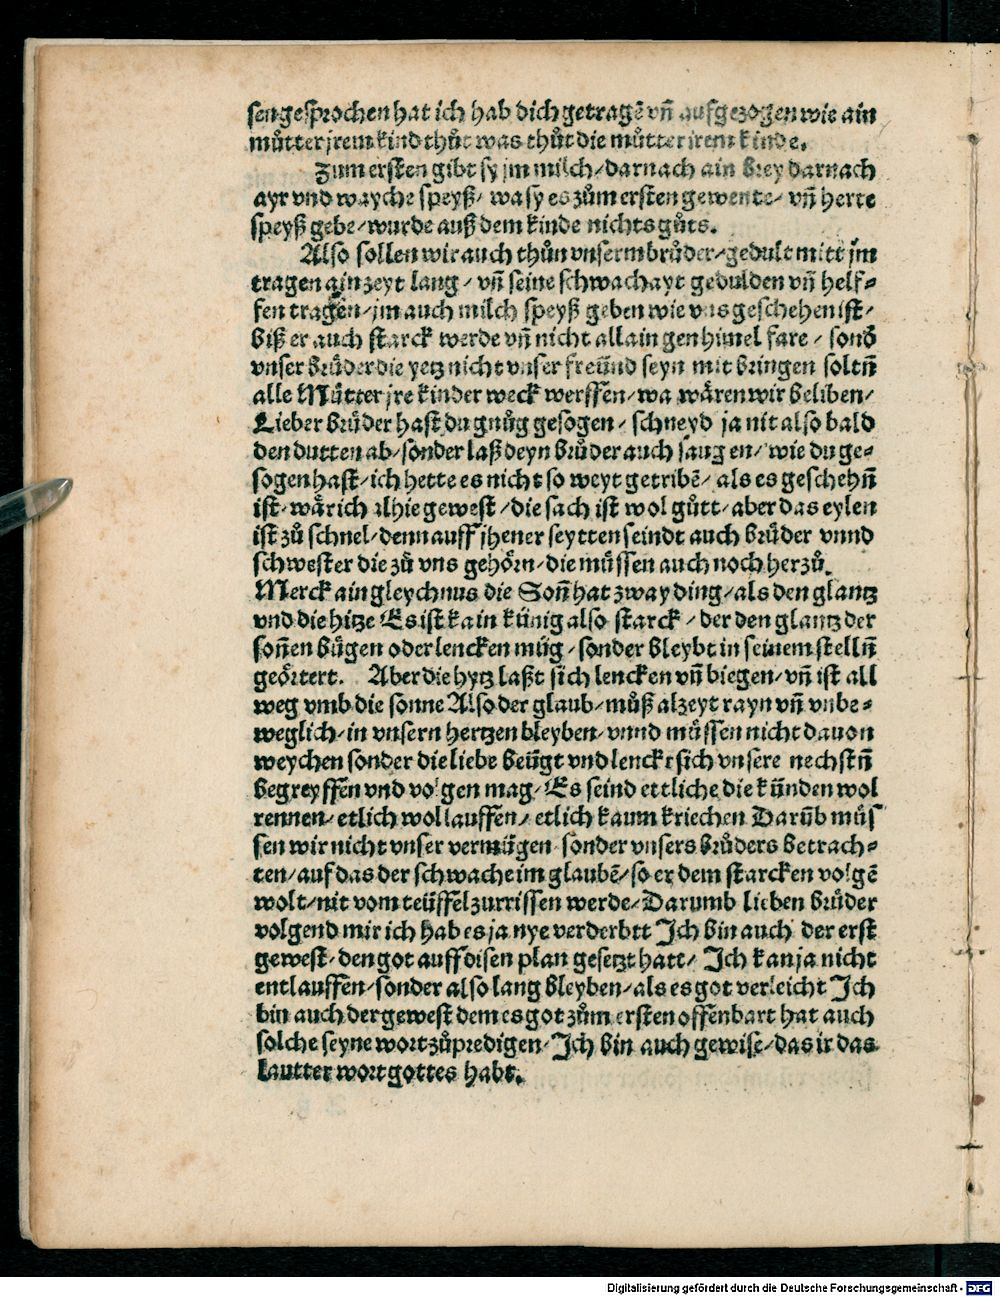 sen gesprochen hat ich hab dich getragẽ vñ aufgezogen wie ain
můtter jrem kind thůt was thůt die můtter irem kinde.
Zum ersten gibt sy jm milch/ darnach ain brey darnach
ayr vnd wayche speyß/ wa sy es zům ersten gewente/ vñ herte
speyß gebe/ wurde auß dem kinde nichts gůts.
Also sollen wir auch thůn vnserm brůder/ gedult mitt jm
tragen ain zeyt lang/ vñ seine schwachayt gedulden vñ helf⸗
fen tragen/ jm auch milch speyß geben wie vns geschehen ist/
biß er auch starck werde vñ nicht allain gen himel fare/ sond̃
vnser Brůder die yetz nicht vnser freünd seyn mit bringen soltñ
alle Můtter jre kinder weck werffen/ wa wären wir beliben/
Lieber Brůder hast du gnůg gesogen/ schneyd ja nit also bald
den dutten ab/ sonder laß deyn brůder auch saugen/ wie du ge⸗
sogen hast/ ich hette es nicht so weyt getribẽ/ als es geschehñ
ist/ wår ich alhie gewest/ die sach ist wol gůtt/ aber das eylen
ist zů schnel/ denn auff jhener seytten seindt auch brůder vnnd
schwester die zů vns gehörn/ die müssen auch noch herzů.
Merck ain gleychnus die Soñ hat zway ding/ als den glantz
vnd die hitze Es ist kain künig also starck/ der den glantz der
soñen bügen oder lencken müg/ sonder bleybt in seinem stellñ
geörtert. Aber die hytz laßt sich lencken vñ biegen/ vñ ist all
weg vmb die sonne Also der glaub/ můß alzeyt rayn vñ vnbe⸗
weglich/ in vnsern hertzen bleyben/ vnnd müssen nicht dauon
weychen sonder die liebe beügt vnd lenckt sich vnsere nechstñ
begreyffen vnd volgen mag/ Es seind ettliche die künden wol
rennen/ etlich wol lauffen/ etlich kaum kriechen Darüb müs
sen wir nicht vnser vermügen sonder vnsers brůders betrach⸗
ten/ auf das der schwache im glaubẽ/ so er dem starcken volgẽ
wolt/ nit vom teüffel zurrissen werde/ Darumb lieben brüder
volgend mir ich hab es ja nye verderbtt Ich bin auch der erst
gewest/ den got auff disen plan gesetzt hatt/ Ich kan ja nicht
entlauffen/ sonder also lang bleyben/ als es got verleicht Ich
bin auch der gewest dem es got zům ersten offenbart hat auch
solche seyne wort zůpredigen/ Ich bin auch gewiß/ das ir das
lautter wort gottes habt.
Digitalisierung gefördert durch die Deutsche Forschungsgemeinschaft - DFG